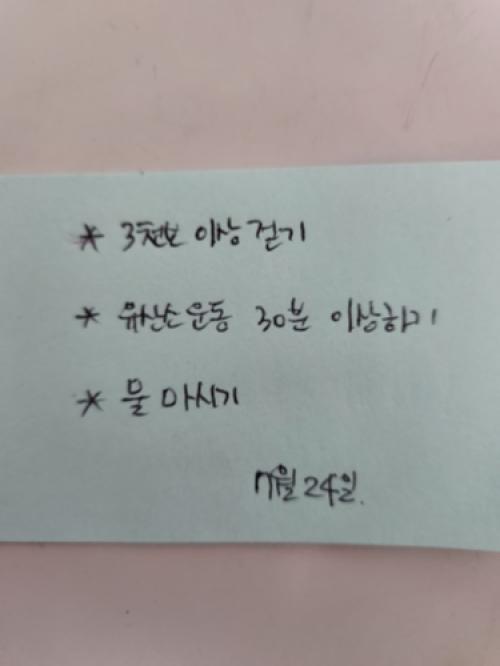 * 3천보 이상 걷기
* 유산소 운동 30분 이상하기
* 물 마시기
7월 24일.